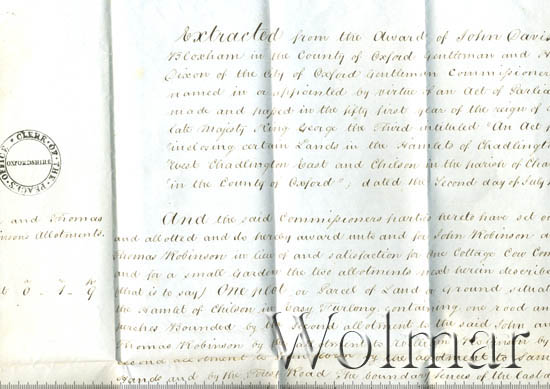 Extracted from the Award of John Davis
Bloxham in the County of Oxford Gentleman and
Dixon of the City of Oxford Gentleman Commissioners
named in or appointed by virtue of an Act of Parlia
made and passed in the fifty first year of the reign of
late Majesty King George the Third intituled "An Act
inclosing certain Lands in the Hamlets of Chadlingt
West Chadlington East and Chilson in the parish of Cha
in the County of Oxford", dated the Second day of July
CLERK OF THE PEACES OFFICE
OXFORDSHIRE
And the said Commissioners parties hereto have set ou
and allotted and do hereby award unto and for John Robinson a
Thomas Robinson in lieu of and satisfaction for one Cottage Cow Com
and for a small Garden the two allotments next herein describe
that is to say) One plot or Parcel of Land or ground situat
the Hamlet of Chilson in Easy Furlong containing one rood an
perches Bounded by the second allotment to the said John an
Thomas Robinson by
second allotment to
Hands and by the Road The boundary fences of the East a
and Thomas
inson's Allotments.
Wolmar